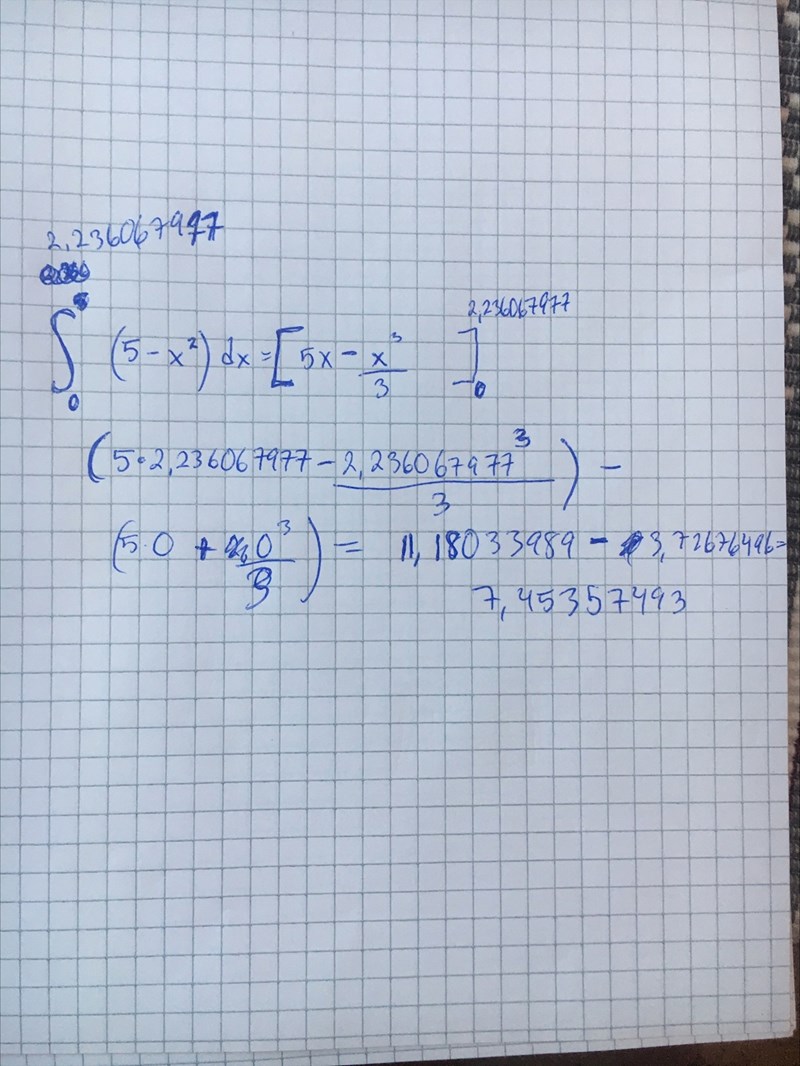 2,236067977
∫₀ (5 - x²) dx = [5x - x³/3]₀^2,236067977
(5·2,236067977 - 2,236067977³/3) -
(5·0 + 0³/3) = 11,18033989 - 3,72676496=
7,45357493